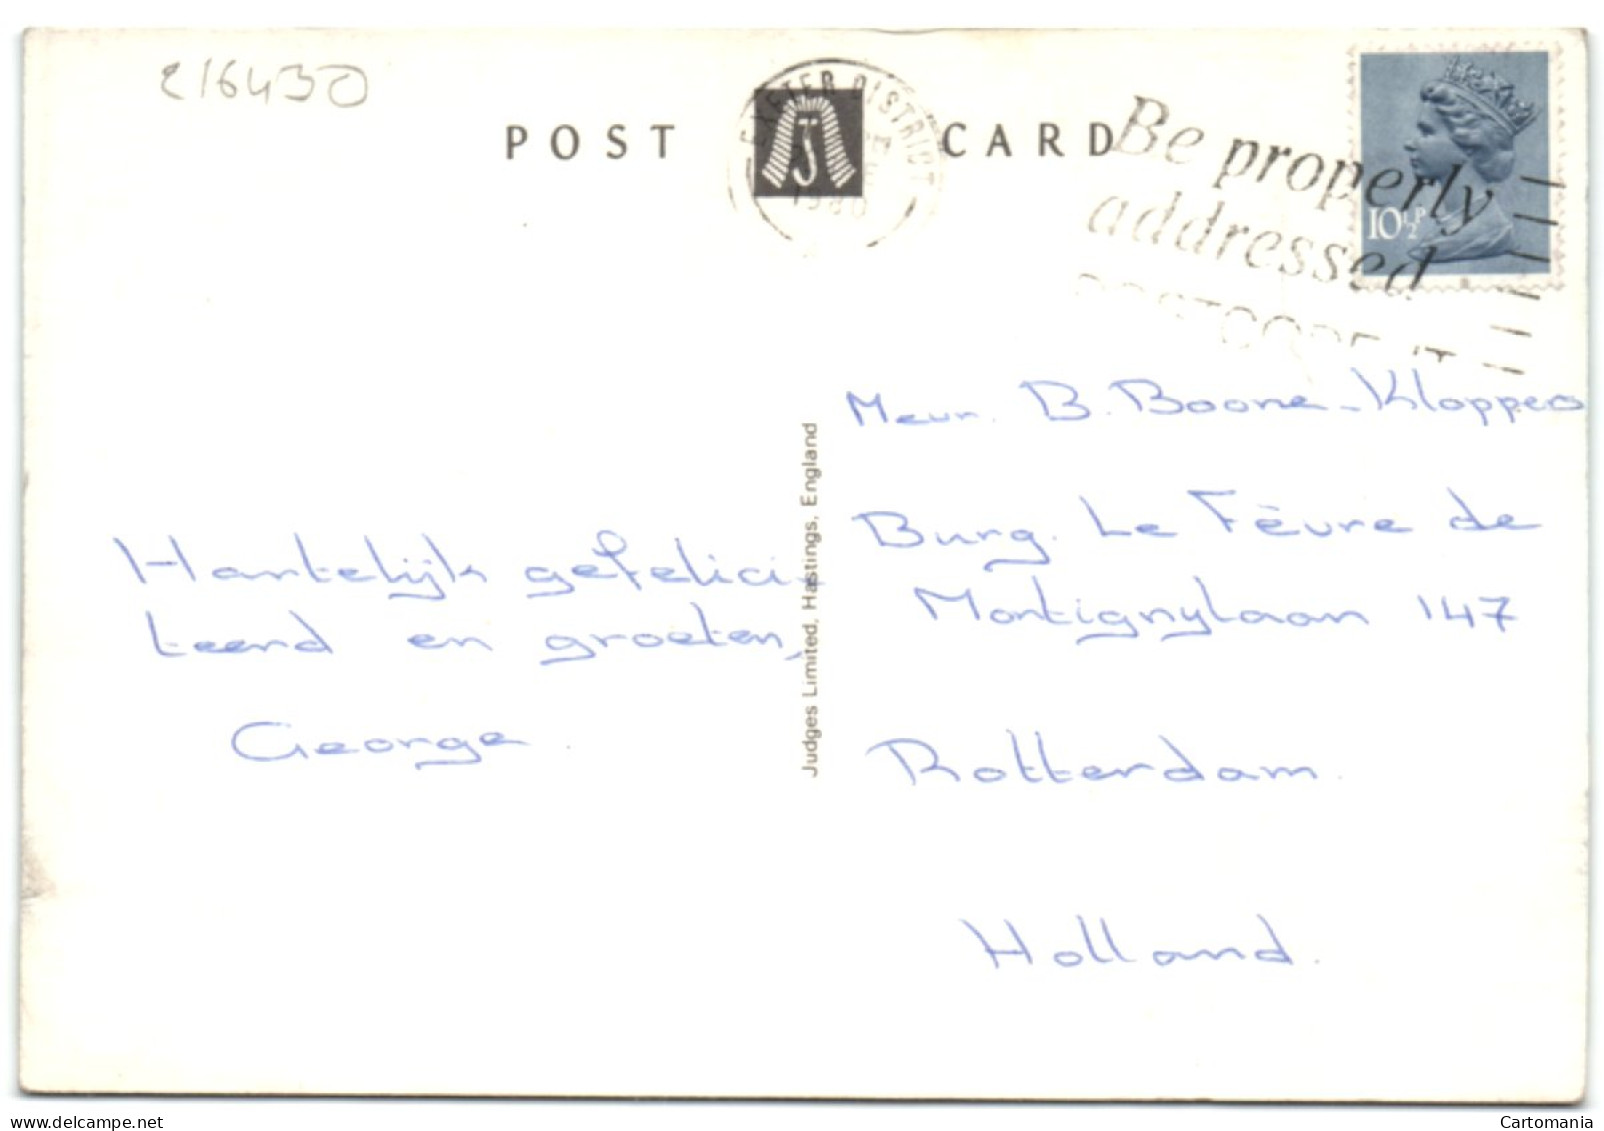 216430
POST CARD
EXETER DISTRICT
1980
Be properly
addressed
POSTCODE IT
10½P
Mevr. B. Boone-Kloppers
Burg. Le Fèvre de
Montignylaan 147
Rotterdam.
Holland.
Hartelijk gefelici-
teerd en groeten,
George.
Judges Limited, Hastings, England
www.delcampe.net
Cartomania